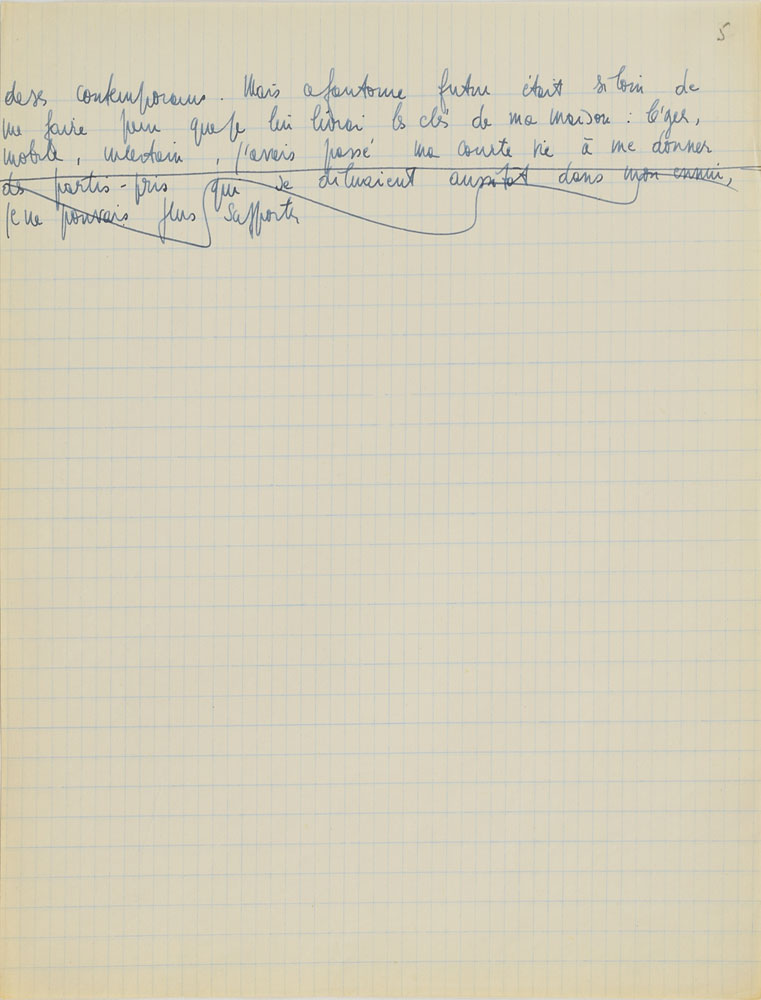 5
de ses contemporains. Mais ce fantome futur était si loin de
me faire peur que je lui livrai les clés de ma maison : léger,
mobile, incertain, j'avais passé ma courte vie à me donner
des partis-pris qui se diluaient aussitot dans mon ennui,
je ne pouvais plus supporter